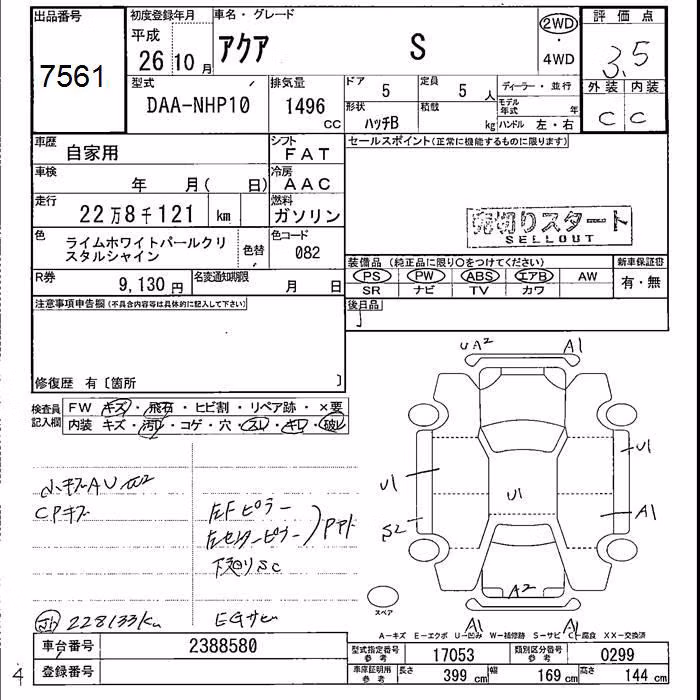 出品番号
7561
初度登録年月
平成
26年10月
車名・グレード
アクア S
2WD
・
4WD
評価点
3.5
外装 内装
C C
型式
DAA-NHP10
排気量
1496
CC
ドア
5
定員
5人
形状
ハッチB
積載
kg
ディーラー・並行
モデル年式 年
ハンドル 左・右
車歴
自家用
シフト
FAT
セールスポイント(正常に機能するものに限ります)
車検
年 月( 日)
冷房
AAC
走行
22万8千121 km
燃料
ガソリン
売切りスタート
SELLOUT
色
ライムホワイトパールクリスタルシャイン
色替
色コード
082
装備品(純正品に限り○をつけてください)
新車保証書
PS PW ABS エアB AW
有・無
SR ナビ TV カワ
R券
9,130円
名変通知期限
月 日
注意事項申告欄(不具合内容等は具体的に記入して下さい)
後日品
修復歴 有〔箇所 〕
検査員記入欄
FW キズ・飛石・ヒビ割・リペア跡・×要
内装 キズ・汚れ・コゲ・穴・スレ・キレ・破レ
小キズAU
CPキズ
左Fピラー
左センターピラー
下廻りSC
228133km
EGサビ
UA2 A1
U1
U1
U1
S2
A1
A2
スペア
A1 A1
A-キズ E-エクボ U-凹み W-補修跡 S-サビ C-腐食 XX-交換済
車台番号
2388580
型式指定番号
参考
17053
類別区分番号
参考
0299
登録番号
車庫証明用
参考
長さ
399 cm
幅
169 cm
高さ
144 cm
4